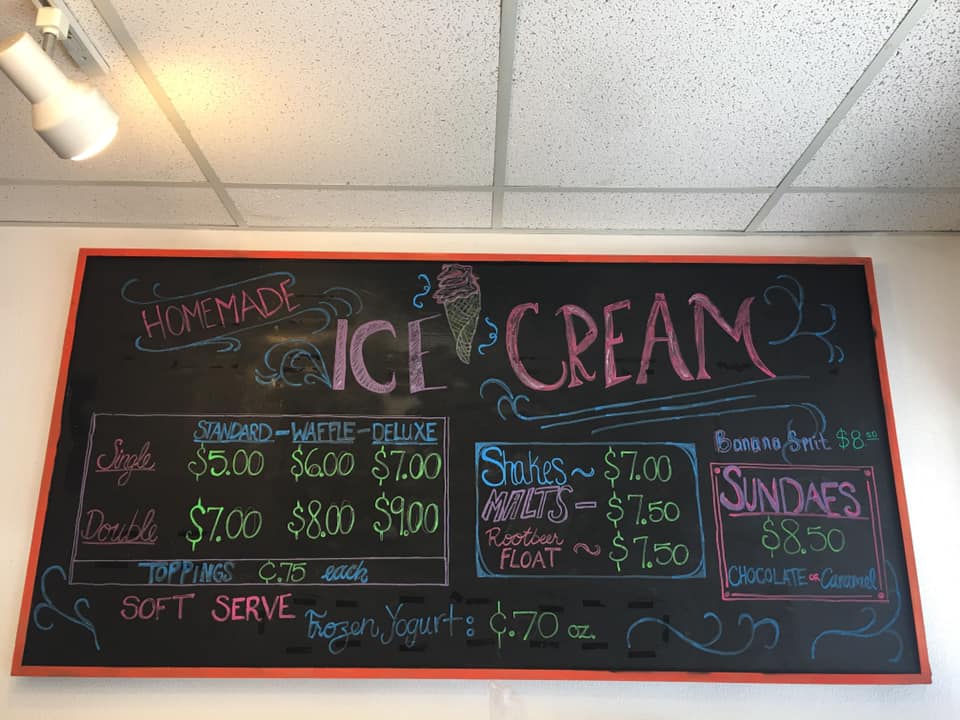 HOMEMADE
ICE CREAM
STANDARD - WAFFLE - DELUXE
Single $5.00 $6.00 $7.00
Double $7.00 $8.00 $9.00
TOPPINGS ¢.75 each
SOFT SERVE
Frozen Yogurt: ¢.70 oz.
Shakes ~ $7.00
MALTS - $7.50
Rootbeer FLOAT ~ $7.50
Banana Split $8.50
SUNDAES
$8.50
CHOCOLATE or Caramel